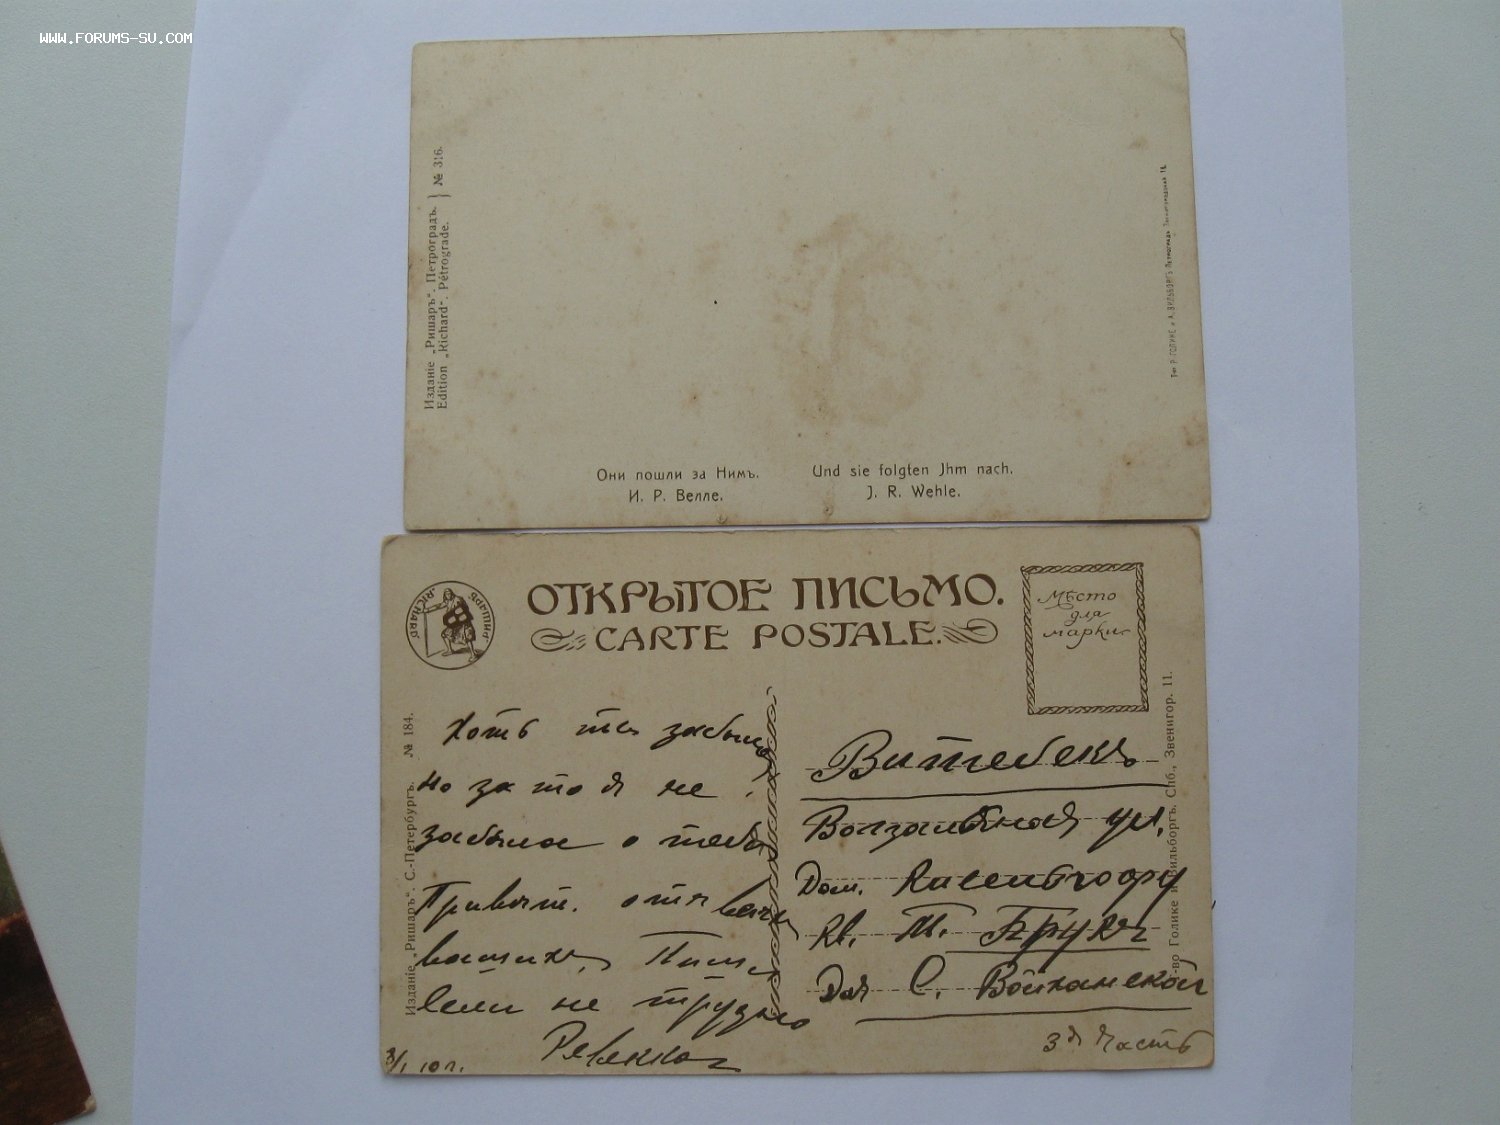 WWW.FORUMS-SU.COM
Изданіе „Ришаръ“. Петроградъ.
Edition „Richard“. Pétrograde.
№ 316.
Тип. Р. ГОЛИКЕ и А. ВИЛЬБОРГЪ Петроградъ
Они пошли за Нимъ.
И. Р. Велле.
Und sie folgten Jhm nach.
J. R. Wehle.
RICHARD
РИШАРЪ
ОТКРЫТОЕ ПИСЬМО.
CARTE POSTALE.
Мѣсто
для
марки
Изданіе „Ришаръ“. С.-Петербургъ. № 184.
Голике и Вильборгъ. Спб., Звенигор. 11.
Хоть ты забыла
но за то я не
забыла о тебѣ
Привѣт. отъ
вашихъ. Пиши
если не трудно
Ревекка
3/I 10 г.
Витебскъ
Вокзальная ул.
Дом.
Кв. М.
Для С.
3я Часть